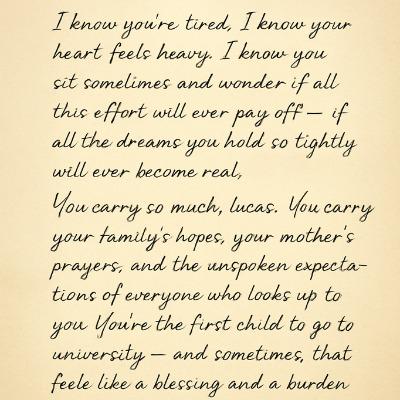 I know you're tired, I know your
heart feels heavy. I know you
sit somelimes and wonder if all
this effort will ever pay off — if
all the dreams you hold so tightly
will ever become real,
You carry so much, lucas. You carry
your family's hopes, your mother's
prayers, and the unspoken expecta-
tions of everyone who looks up to
you You're the first child to go to
university — and sometimes, that
feele like a blessing and a burden